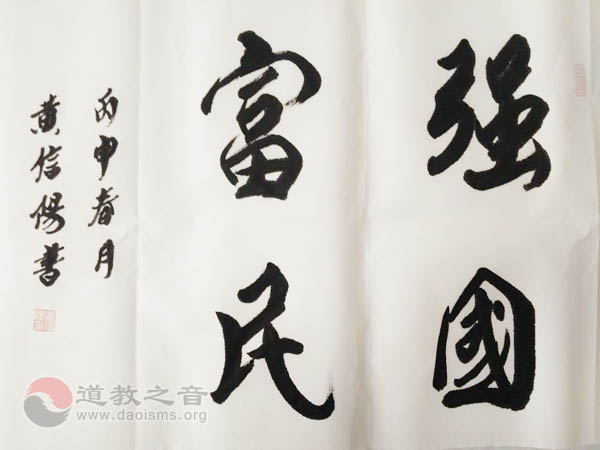 强國
富民
丙申春月
黄信陽書
道教之音
www.daoisms.org